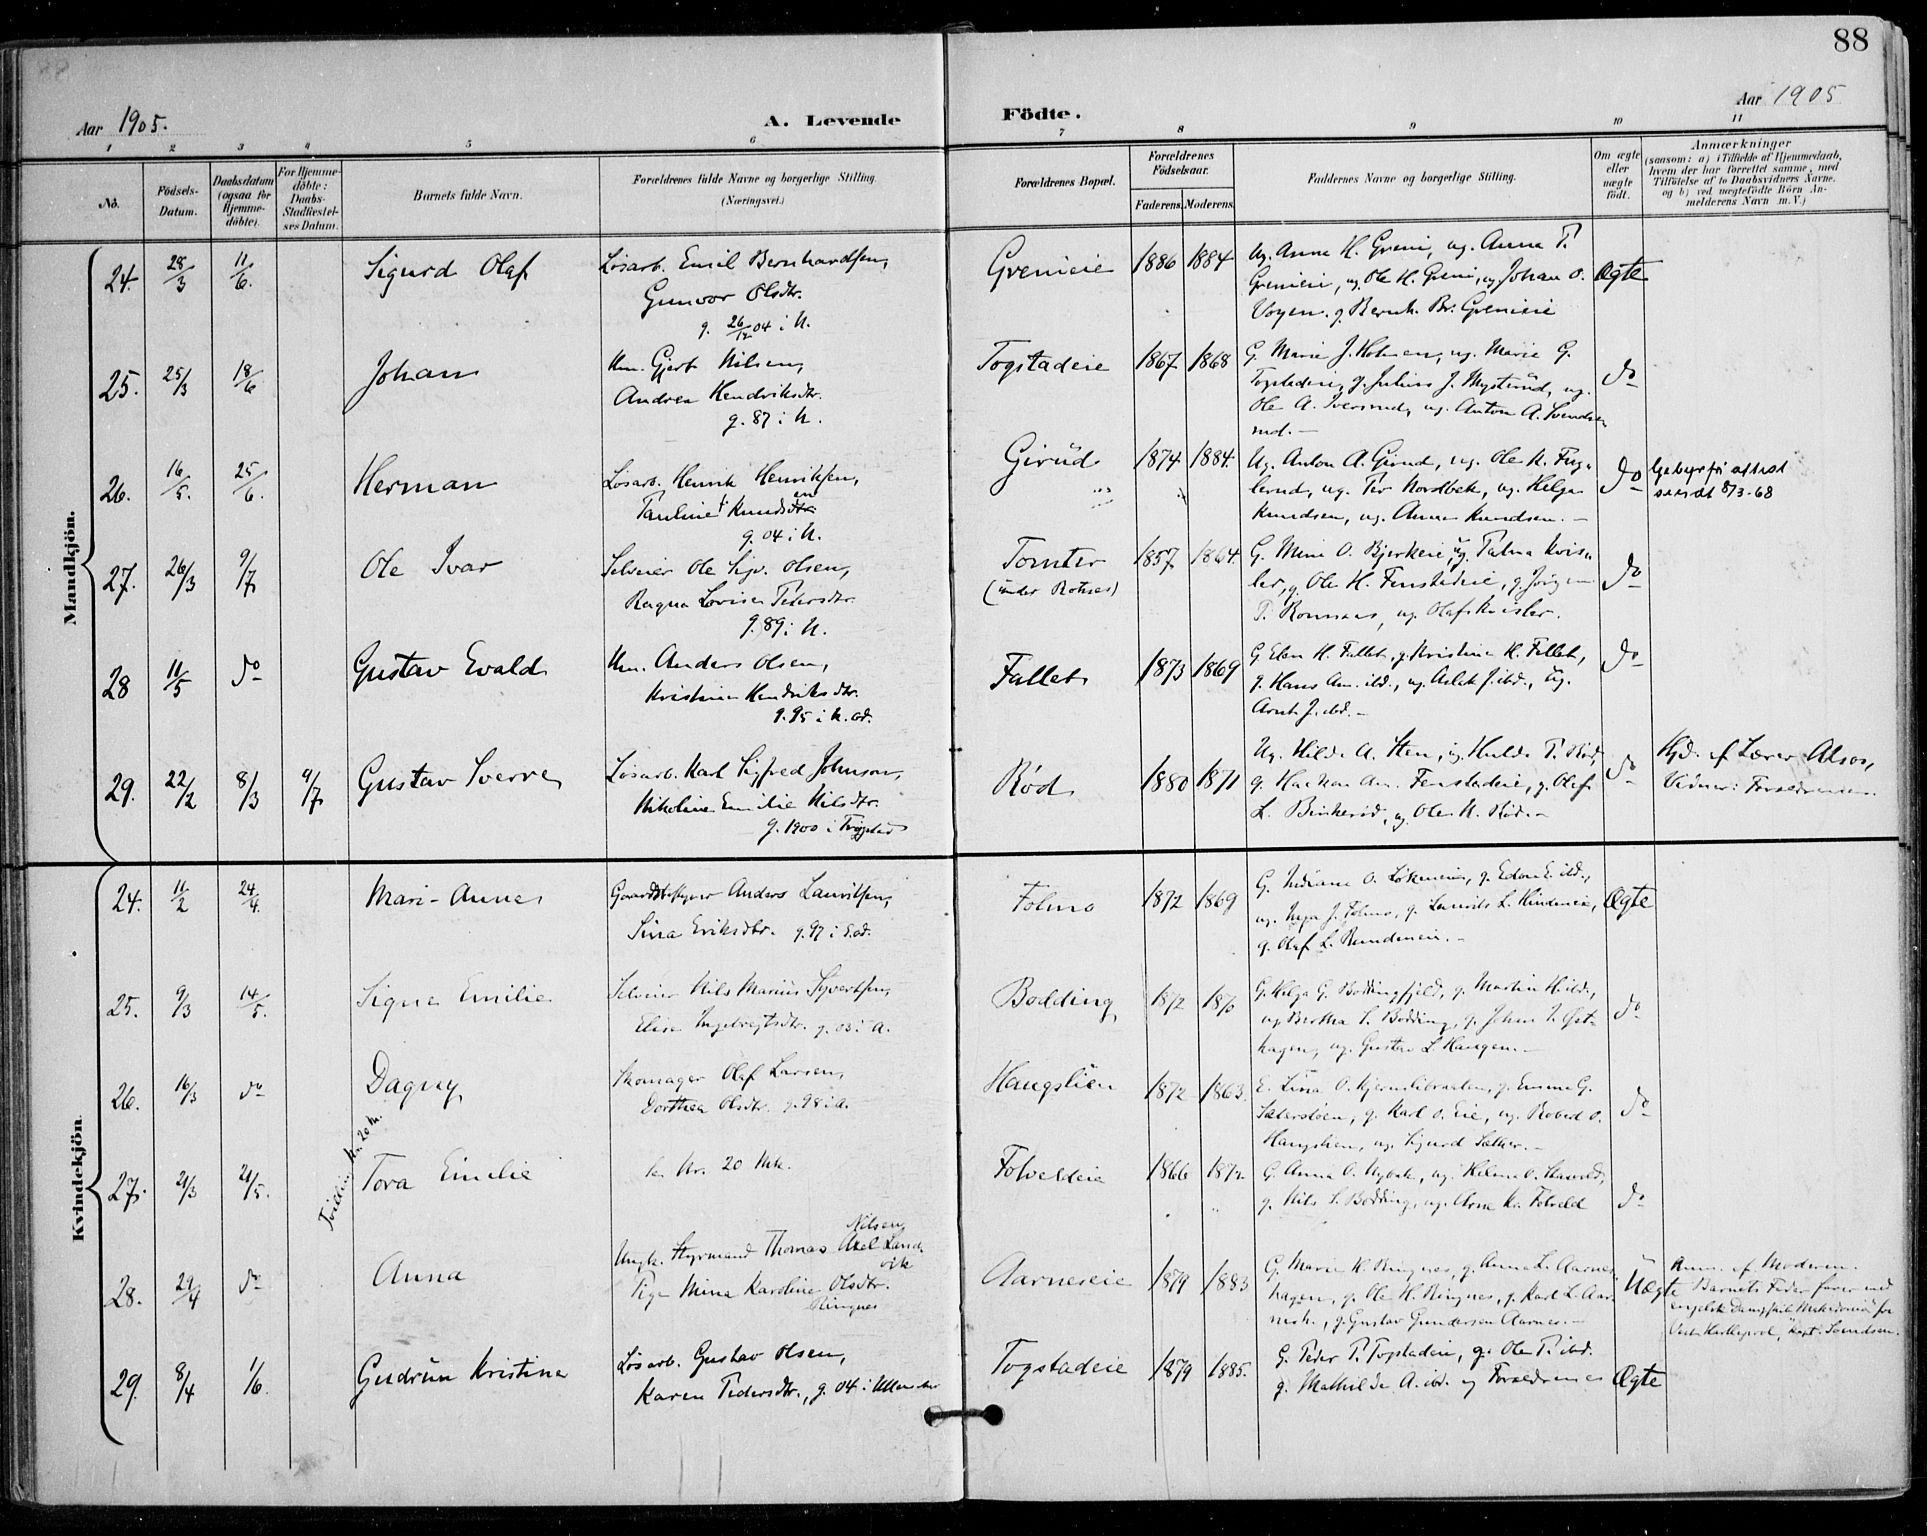 88
Aar 1905.
A. Levende Födte.
Aar 1905
1 2 3 4 5 6 7 8 9 10 11
No.
Födsels-Datum.
Daabsdatum (ogsaa for Hjemmedöbte).
For Hjemmedöbte: Daabs-Stadfæstelses Datum.
Barnets fulde Navn.
Forældrenes fulde Navne og borgerlige Stilling. (Næringsvei.)
Forældrenes Bopæl.
Forældrenes Födselsaar.
Faderens. Moderens.
Faddernes Navne og borgerlige Stilling.
Om ægte eller uægte födt.
Anmærkninger
(saasom: a) i Tilfælde af Hjemmedaab, hvem der har forrettet samme, med Tilföielse af to Daabsvidners Navne. og b) ved uægtefödte Börn Anmelderens Navn m. V.)
Mandkjön.
24. 28/3 11/6. Sigurd Olaf
Løsarb. Emil Bernhardsen,
Gunvor Olsdtr.
g. 26/12 04 i N.
Grenieie 1886 1884
Ug. Anne H. Greni, ug. Anna T.
Grenieie, ug. Ole H. Greni, ug. Johan O.
g. Bernh. Br. Grenieie
Ægte
25. 25/3 18/6 Johan
Hm. Gjert Nilsen,
Andrea Hendriksdtr.
g. 87 i N.
Togstadeie 1867 1868
G. Marie J. Holmen, ug. Marie G.
Togstadeie, g. Julius J. Mysterud, ug.
Ole A. Iversrud, ug. Anton A. Svendsen
rud.
do
26. 16/5. 25/6. Herman
Løsarb. Henrik Henriksen,
Pauline Knudsdtr.
g. 04 i N.
Girud 1874 1884.
Ug. Anton A. Girud, ug. Ole K. Fug-
lerud, ug. Per Nordbek, ug. Helga
Knudsen, ug. Anna Knudsen.
do
8/3-68
27. 26/3 9/7 Ole Ivar
Selveier Ole Sigv. Olsen,
Ragna Lovise Pedersdtr.
g. 89 i N.
Tomter
(under Rotnes)
1857 1864.
G. Mina O. Bjerkeie, ug. Palma Kvis-
ler, g. Ole H. Fenstadeie, g. Jørgen
T. Romsaas, ug. Olaf Kvisler.
do
28 11/5 do Gustav Evald
Hm. Anders Olsen,
Kristine Hendriksdtr.
g. 95 i N. Od.
Fallet 1873 1869
G. Elen H. Fallet, g. Kristine H. Fallet,
g. Hans An. ibd., ug. Aslak J. ibd., ug.
Arnt J. ibd.
do
29. 22/2 8/3 9/7 Gustav Sverre
Løsarb. Karl Sigfred Johnson,
Nikoline Emilie Nilsdtr.
g. 1900 i Trygstad
Rød 1880 1871
Ug. Hilda A. Sten, ug. Hulda P. Rød,
g. Haakon An. Fenstadeie, g. Olaf
L. Birkerød, ug. Ole N. Rød.
do
Hjd. af Lærer Alsos,
Vidner: Forældrene.
Kvindekjön.
24. 11/2 24/4. Mari-Anne
Gaardbestyrer Anders Lauritsen,
Sina Eriksdtr. g. 97 i S. Od.
Folmo 1872 1869
G. Indiane O. Løkeneie, g. Edon E. ibd.,
ug. Inga J. Folmo, g. Laurits L.
g. Olaf L. Rundeneie.
Ægte
25. 9/3 14/5. Signe Emilie
Selveier Nils Marius Syvertsen,
Elise Ingebregtsdtr. g. 03 i A.
Bodding 1872 1870
G. Helga G. Boddingfjeld, g. Martin H. ibd.,
ug. Bertha S. Bodding, g. Johan I. Øst-
hagen, ug. Gustav L. Haugen.
do
26. 16/3 do Dagny
Skomager Olaf Larsen,
Dorthea Olsdtr. g. 98 i A.
Haugslien 1872 1863.
E. Lina O. Hjernlibraaten, g. Emma G.
Sæterstøen, g. Karl O. Eie, ug. Robert O.
Haugslien, ug. Sigurd Sætker.
do
Tvilling Nr. 20 M.
27. 21/3 21/5. Tora Emilie
se Nr. 20 Mk.
Folveldeie 1866 1872
G. Anna O. Nybak, ug. Helma O.
g. Nils S. Bodding, ug. Arne Kr. Folveld
do
28. 29/4 do Anna
Ungk. Styrmand Thomas Axel Nilsen Land-
vik
Pige Mina Karoline Olsdtr.
Ringnes
Aarneseie 1879 1883
G. Marie K. Ringnes, g. Anna L. Aarnes-
hagen, g. Ole H. Ringnes, g. Karl L. Aar-
nesh., g. Gustav Gundersen Aarnes.
Uægte
Anm. af Moderen.
Barnets Fader farer med
engelsk Dampskib Makedonia fra
Vest Hartlepool, Kapt. Svendsen.
29. 8/4 1/6. Gudrun Kristine
Løsarb. Gustav Olsen,
Karen Pedersdtr., g. 04 i Ullensaker
Togstadeie 1879 1885.
G. Peder P. Togstadeie, g. Ole P. ibd.
g. Mathilde A. ibd. og Forældrene
Ægte